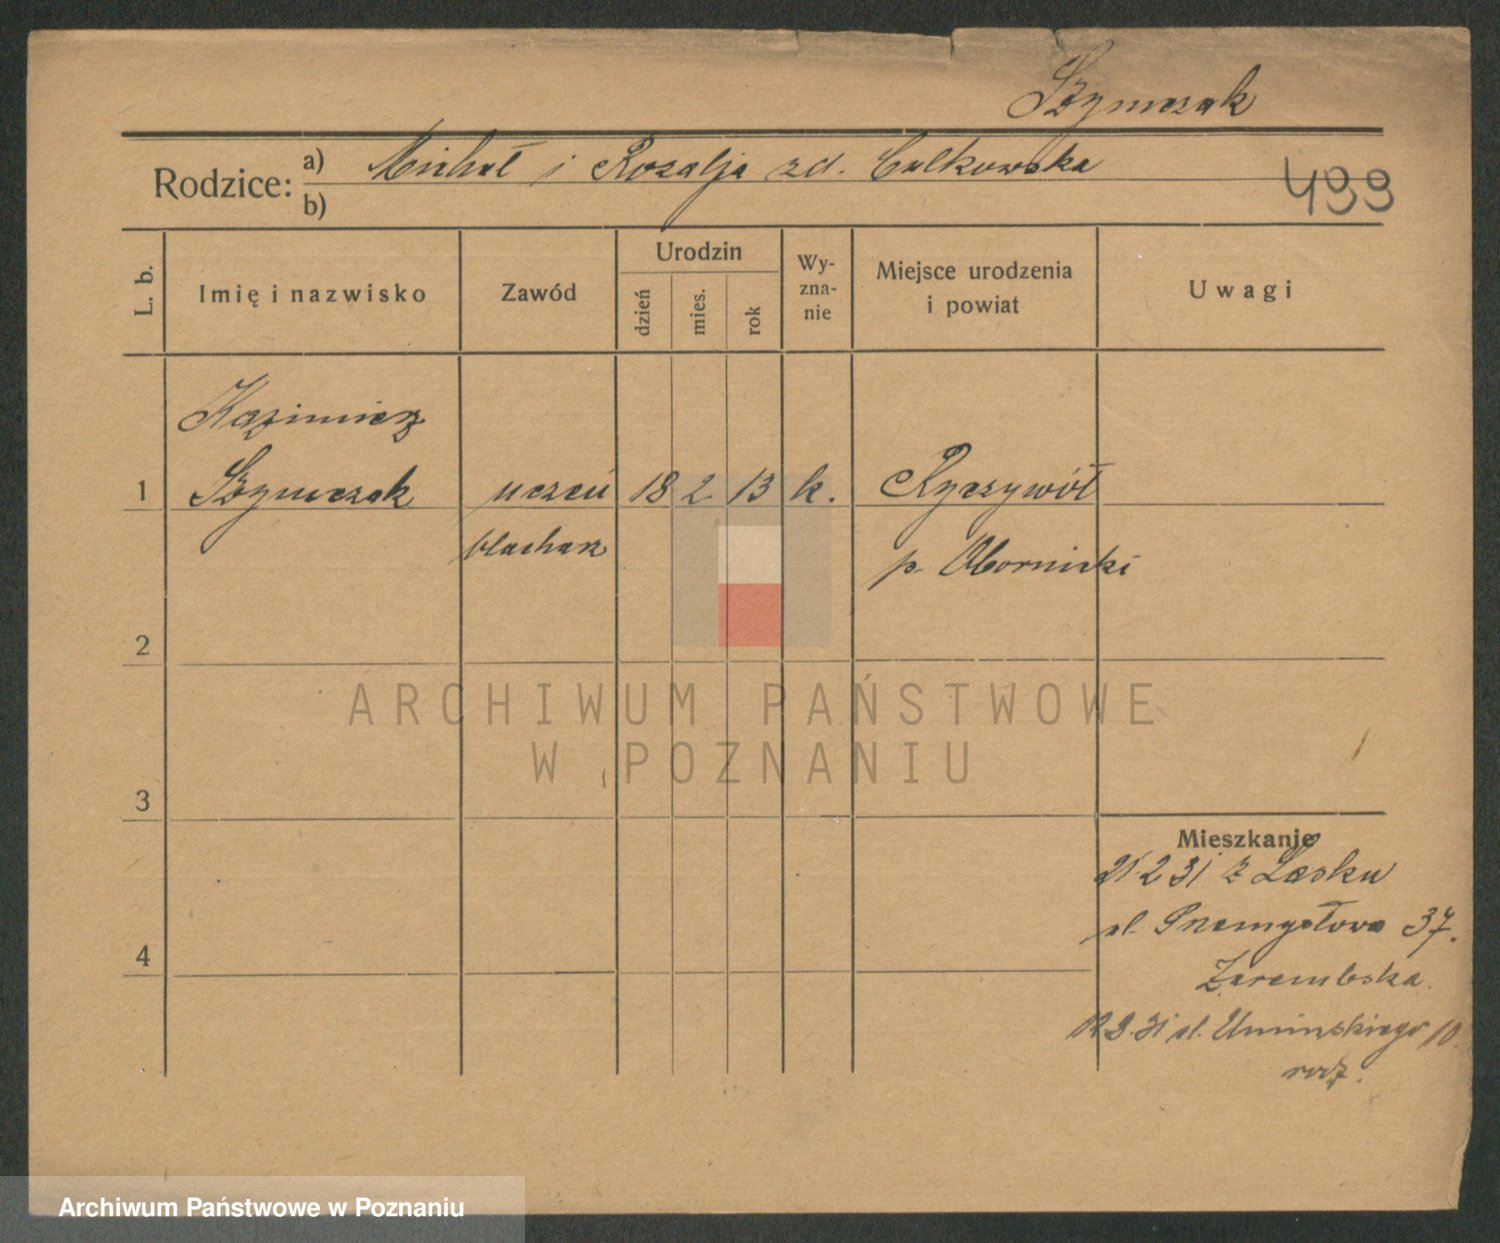 Szymczak
Rodzice: a) Michał i Rozalja zd. Calkowska
b)
499
L. b.
Imię i nazwisko
Zawód
Urodzin
dzień
mies.
rok
Wy-
zna-
nie
Miejsce urodzenia
i powiat
Uwagi
Kazimierz
1 Szymczak uczeń 18 2. 13 k. Ryczywół
blacharz p. Obornicki
2
3
4
ARCHIWUM PAŃSTWOWE
W POZNANIU
Mieszkanie
21 2 31 z Lasku
ul. Przemysłowa 37.
Zarembska
12 3. 31 ul. Umińskiego 10.
rodz.
Archiwum Państwowe w Poznaniu